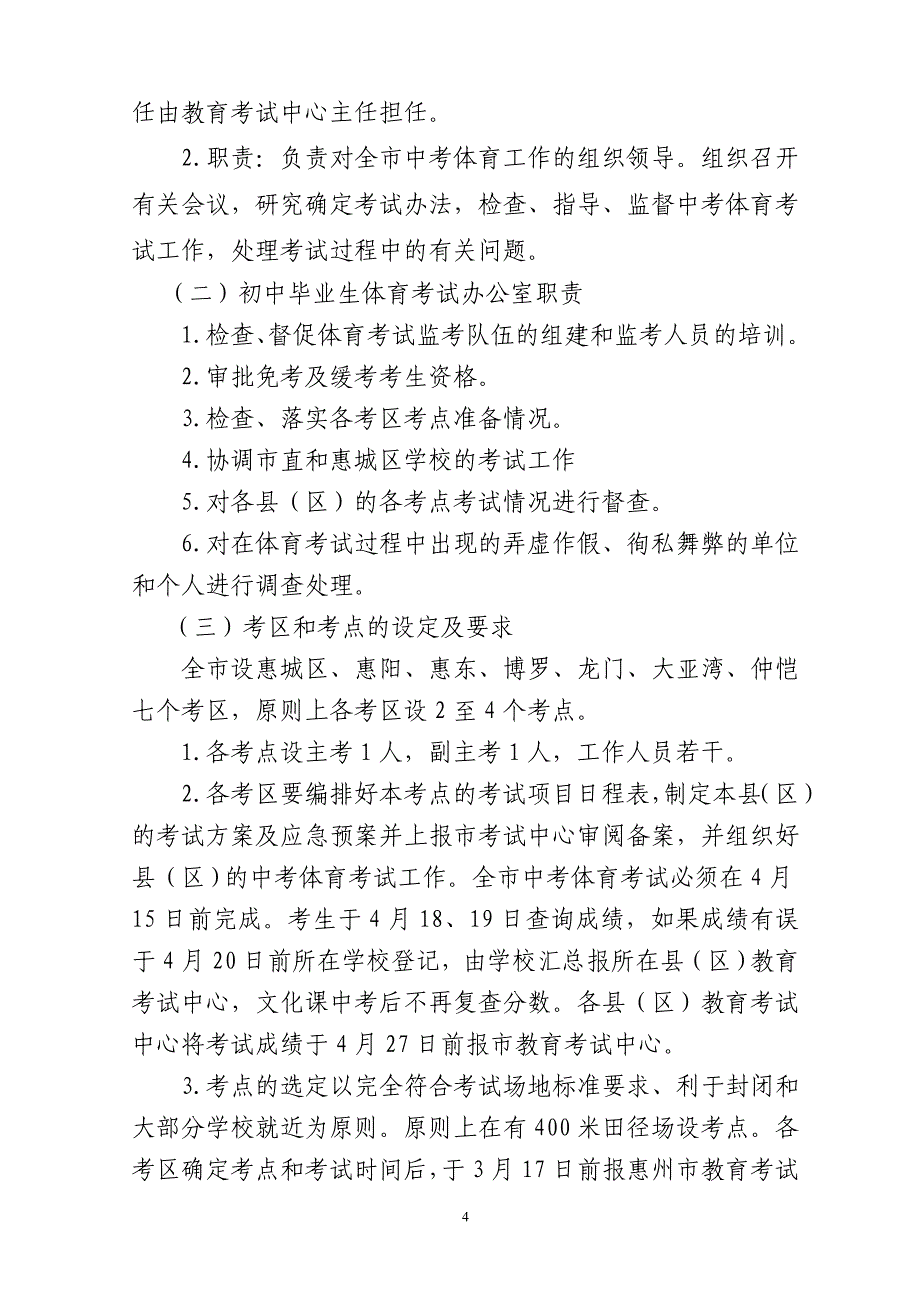 任由教育考试中心主任担任。
2.职责：负责对全市中考体育工作的组织领导。组织召开
有关会议，研究确定考试办法，检查、指导、监督中考体育考
试工作，处理考试过程中的有关问题。
（二）初中毕业生体育考试办公室职责
1.检查、督促体育考试监考队伍的组建和监考人员的培训。
2.审批免考及缓考考生资格。
3.检查、落实各考区考点准备情况。
4.协调市直和惠城区学校的考试工作
5.对各县（区）的各考点考试情况进行督查。
6.对在体育考试过程中出现的弄虚作假、徇私舞弊的单位
和个人进行调查处理。
（三）考区和考点的设定及要求
全市设惠城区、惠阳、惠东、博罗、龙门、大亚湾、仲恺
七个考区，原则上各考区设2至4个考点。
1.各考点设主考1人，副主考1人，工作人员若干。
2.各考区要编排好本考点的考试项目日程表，制定本县（区）
的考试方案及应急预案并上报市考试中心审阅备案，并组织好
县（区）的中考体育考试工作。全市中考体育考试必须在4月
15日前完成。考生于4月18、19日查询成绩，如果成绩有误
于4月20日前所在学校登记，由学校汇总报所在县（区）教育
考试中心，文化课中考后不再复查分数。各县（区）教育考试
中心将考试成绩于4月27日前报市教育考试中心。
3.考点的选定以完全符合考试场地标准要求、利于封闭和
大部分学校就近为原则。原则上在有400米田径场设考点。各
考区确定考点和考试时间后，于3月17日前报惠州市教育考试
4